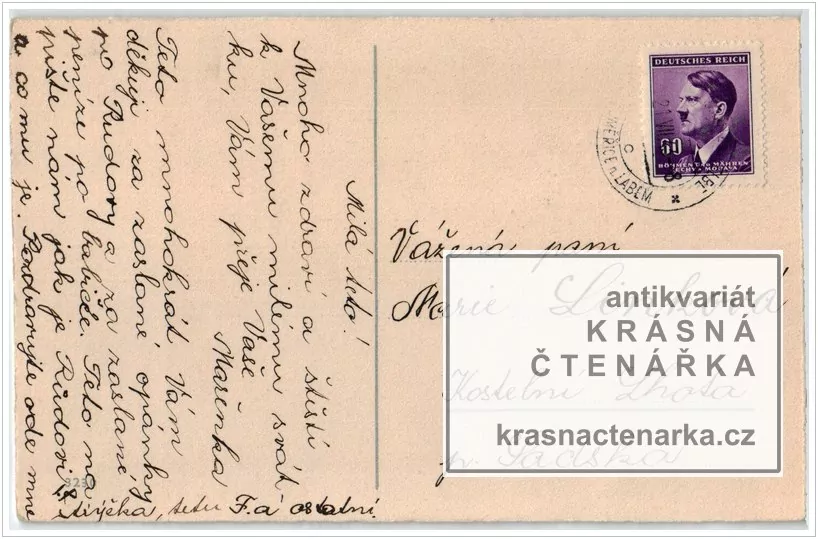 Milá teto!
Mnoho zdraví a štěstí
k Vašemu milému svát
ku, Vám přeje Vaše
Mařenka
Teto mnohokrát Vám
děkuji za zaslané opánky
po Rudovy a za zaslané
peníze po babičce. Teto na
pište nám jak je Rudovi
a co mu je. Pozdravujte ode mne
strýčka, tetu F. a ostatní.
9230
DEUTSCHES REICH
60
BÖHMEN U. MÄHREN
ČECHY A MORAVA
MĚŘICE n. LABEM
c
Vážená paní
Marie Linková
Kostelní Lhota
p. Sadská
antikvariát
KRÁSNÁ
ČTENÁŘKA
krasnactenarka.cz